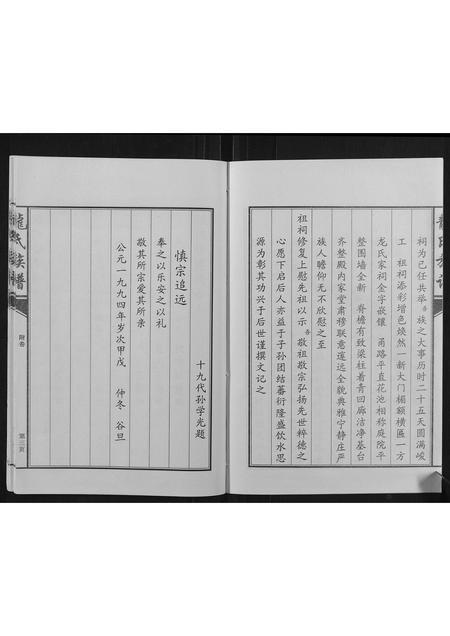 祠为己任共举吾族之大事历时二十五天圆满峻
工 祖祠添彩增色焕然一新大门楣额横匾一方
龙氏家祠金字嵌镶 甬路平直花池相称庭院平
整围墙全新 脊檐有致梁柱着青回廊洁净基台
齐整殿内家堂肃穆联意蕴远全貌典雅宁静庄严
族人瞻仰无不欣慰之至
祖祠修复上慰先祖以示吾敬祖敬宗弘扬先世粹德之
心愿下启后人亦益于子孙团结蕃衍隆盛饮水思
源为彰其功兴于后世谨撰文记之
十九代孙学光题
慎宗追远
奉之以乐安之以礼
敬其所宗爱其所亲
公元一九九四年岁次甲戌 仲冬 谷旦
龍氏族譜
附卷
第三页